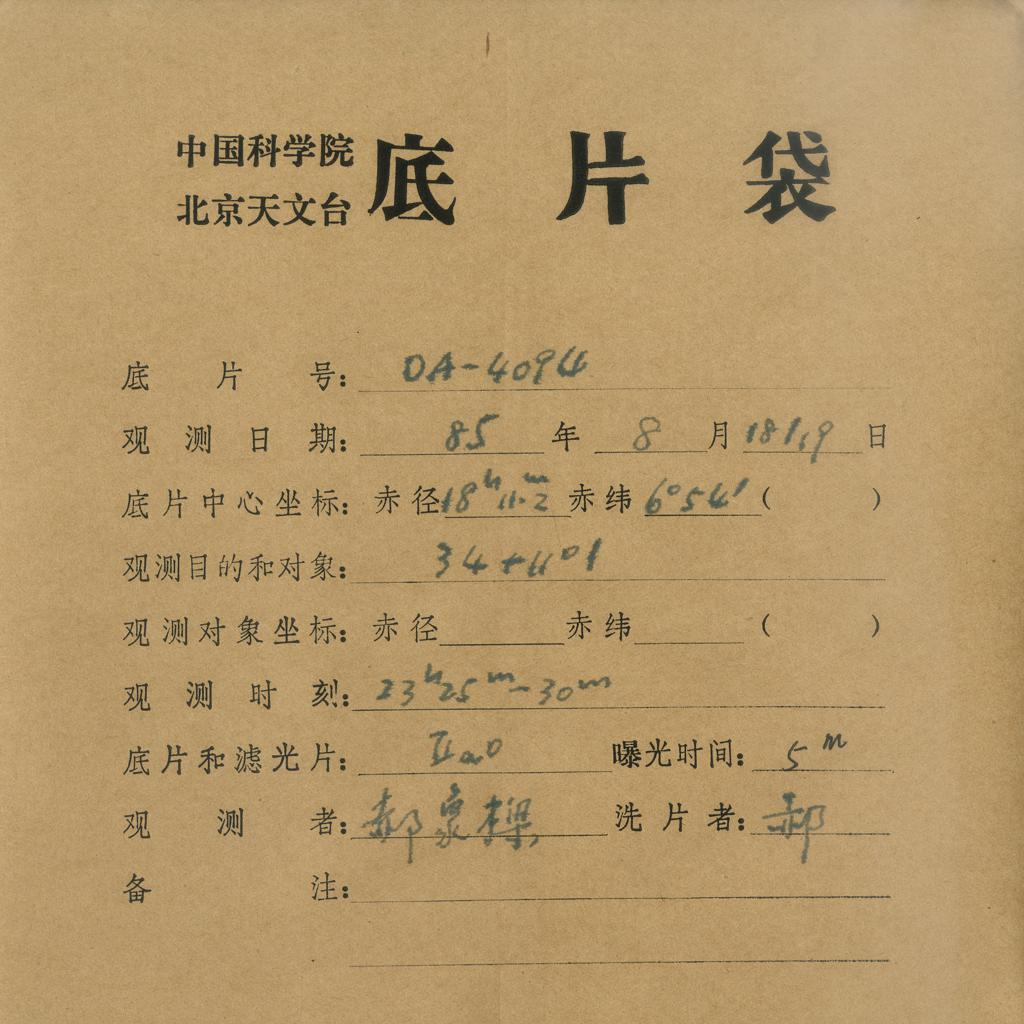 中国科学院
北京天文台
底片袋
底片号: DA-4094
观测日期: 85年8月18/19日
底片中心坐标: 赤径18h11m.2 赤纬6°54′( )
观测目的和对象:
观测对象坐标: 赤径 赤纬 ( )
观测时刻: 23h25m-30m
底片和滤光片: IIaO 曝光时间: 5m
观测者: 郝象樑 洗片者: 郝
备注: